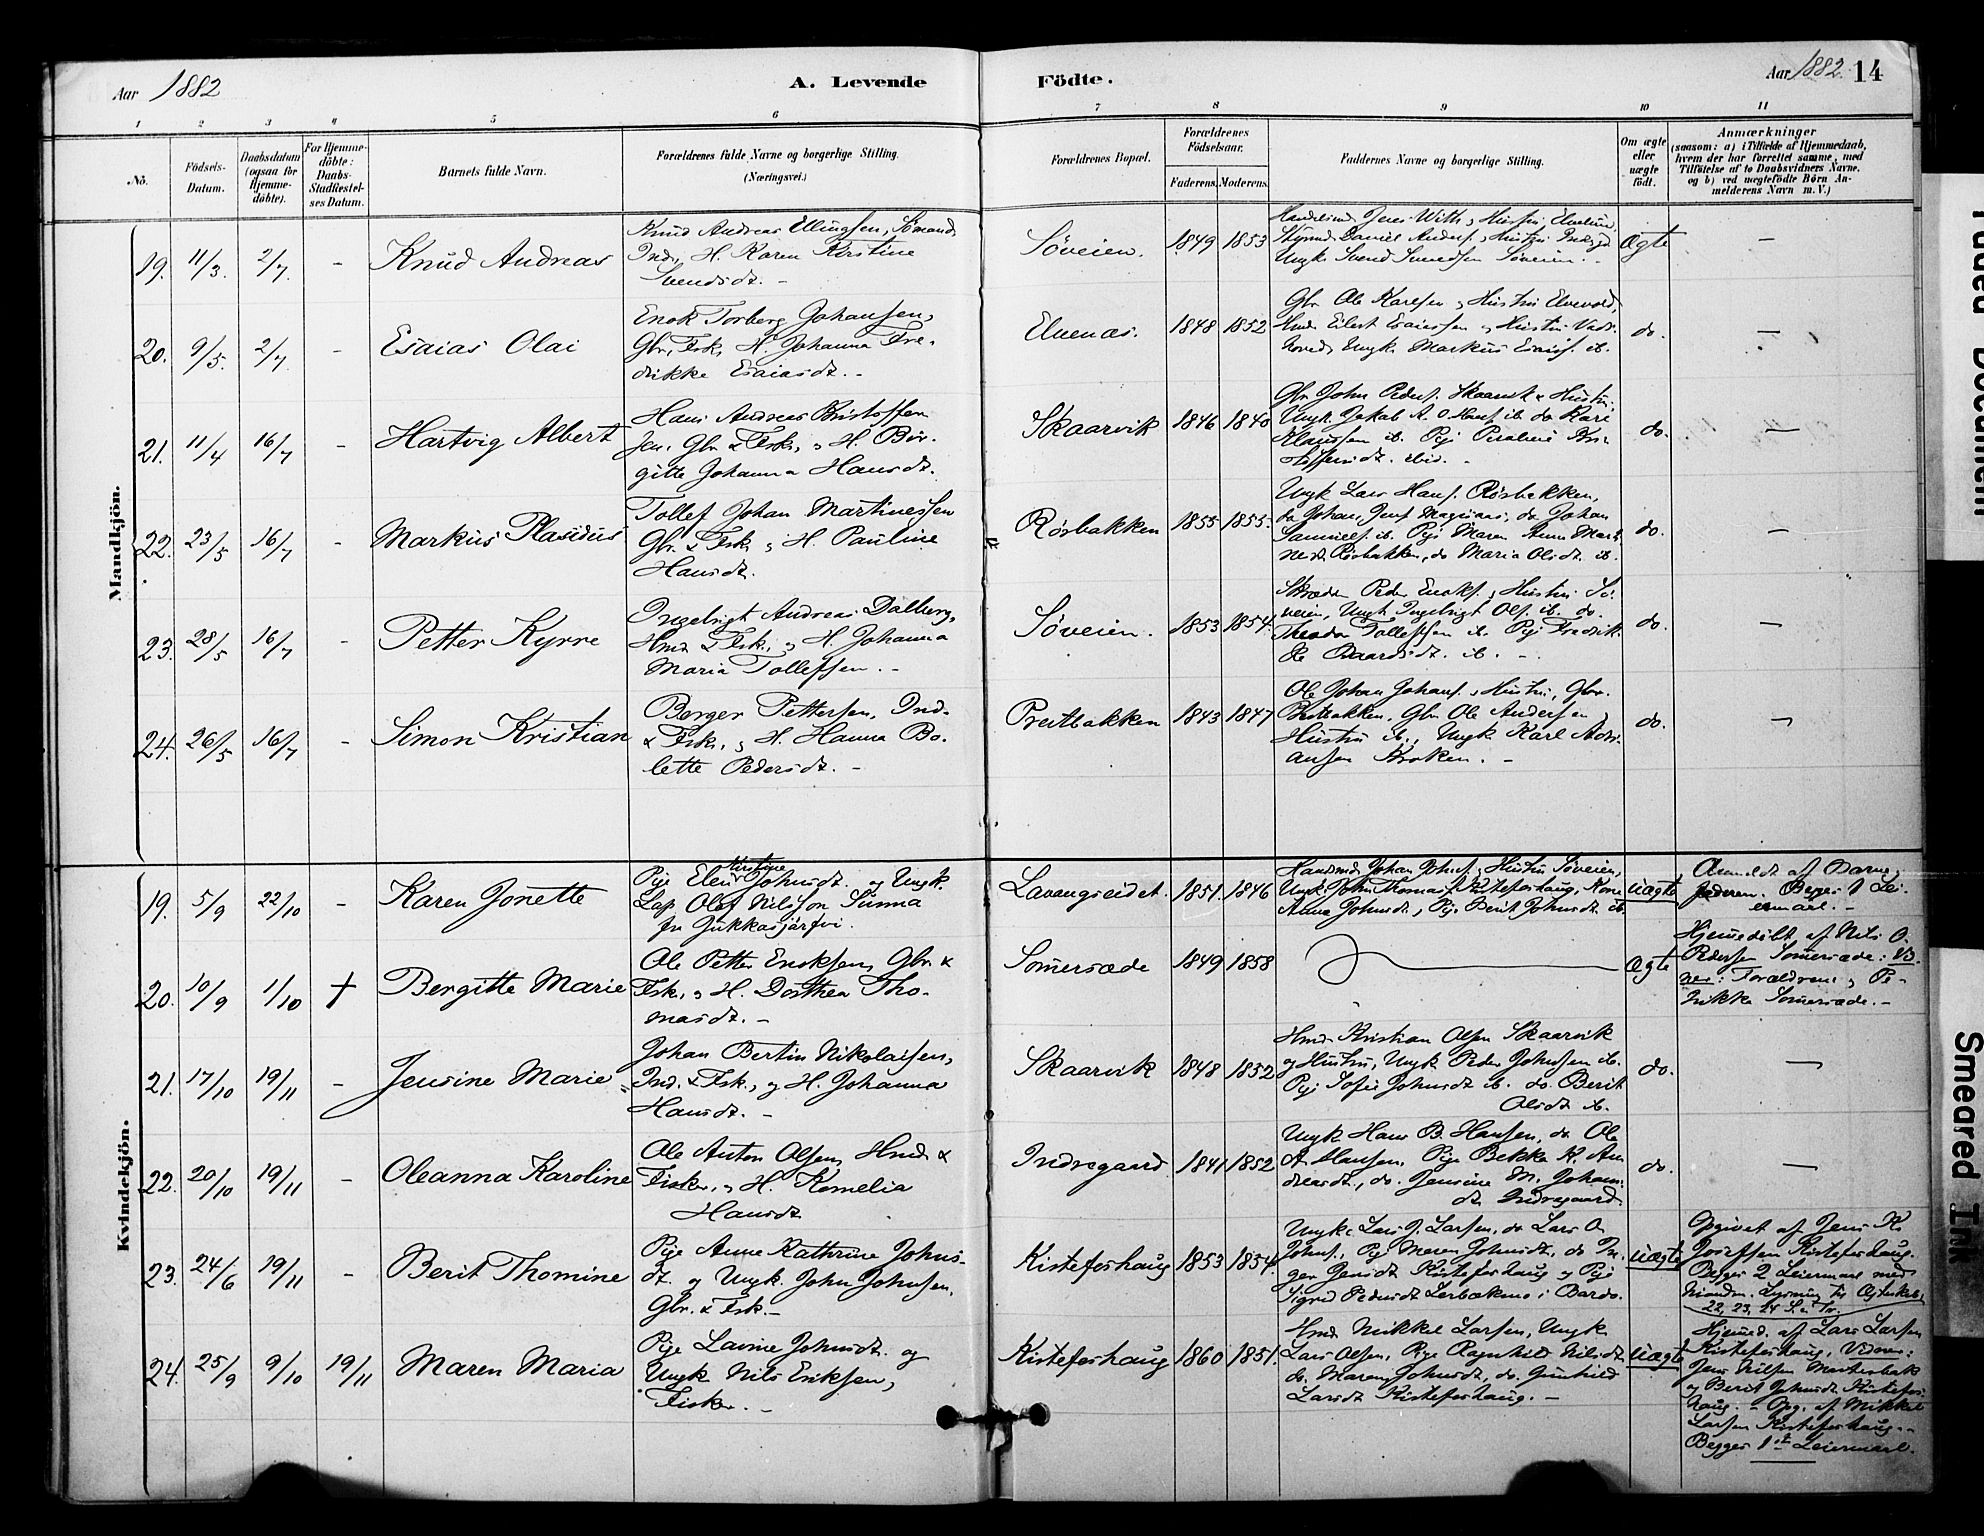 Aar 1882
A. Levende
Födte.
Aar 1882. 14
1 2 3 4 5 6 7 8 9 10 11
No.
Födsels-
Datum.
Daabsdatum
(ogsaa for
Hjemme-
döbte).
For Hjemme-
döbte:
Daabs-
Stadfæstel-
ses Datum.
Barnets fulde Navn.
Forældrenes fulde Navne og borgerlige Stilling.
(Næringsvei.)
Forældrenes Bopæl.
Forældrenes
Födselsaar.
Faderens. Moderens.
Faddernes Navne og borgerlige Stilling.
Om ægte
eller
uægte
födt.
Anmærkninger
(saasom: a) i Tilfælde af Hjemmedaab,
hvem der har forrettet samme, med
Tilföielse af to Daabsvidners Navne.
og b) ved uægtefödte Börn An-
melderens Navn m. V.)
Mandkjön.
19. 11/3. 2/7. - Knud Andreas
Knud Andreas Ellingsen, Sömand,
Ind., H. Karen Kirstine
Svendsdt. -
Söveien. 1849 1853
Daniel Anders. Hustru
Ungk. Svend Svendsen Söveien. -
Ægte -
20. 9/5. 2/7. - Esaias Olai
Enok Torberg Johansen,
Gbr., Fsk., H. Johanna Fre-
drikke Esaiasdt. -
Elvenæs. 1848 1852
Gbr. Ole Karlsen, Hustru Elvevold,
Eilert Esaiassen og Hustru
Ungk. Markus Esaiss. ib.
do. -
21. 11/4 16/7 - Hartvig Albert
Hans Andreas Kristoffer-
sen, Gbr. & Fsk., og H. Bir-
gitte Johanna Hansdt.
Skaarvik 1846 1840
Gbr. John Peders. Skaarvik & Hustru,
Ungk. Jakob A. O. Hans. ib. do Karl
Klaussen ib. Pige
ibid. -
do. -
22. 23/5 16/7 - Markus Plasidus
Tollef Johan Martinessen
Gbr. & Fsk., og H. Pauline
Hansdt.
Rösbakken 1855 1855.
Ungk. Lars Hans. Rösbakken,
do Johan Jens. do Johan
Samuels. ib. Pige Maren Anna Mart-
nesdt. Rösbakken, do Maria Olsdt. ib.
do. -
23. 28/5 16/7 - Petter Kyrre
Ingebrigt Andreas Dalberg,
Hmd. & Fsk., og H. Johanna
Maria Tollefsen. -
Söveien. 1853 1854.
Peder Enoks., Hustru Sö-
veien, Ungk. Ingebrigt Ols. ib. do.
Theodor Tollefsen ib. Pige Fredrik-
ke Baardsdt. ib. -
do. -
24. 26/5 16/7 - Simon Kristian
Berger Pettersen, Ind.
& Fsk., og H. Hanna Bo-
lette Pedersdt. -
Prestbakken 1843 1847
Ole Johan Johans., Hustru, Gbr.
Prestbakken, Gbr. Ole Andersen,
Hustru ib., Ungk. Karl Adri-
ansen Kroken. -
do. -
Kvindekjön.
19. 5/9 22/10 - Karen Jonette
Kirstine
Pige Elen Johnsdt. og Ungk.
Lap Olof Nilsson Sunna
fra Jukkasjärfvi.
Lavangseidet. 1851. 1846
Johan Johns. Hustru Söveien,
Ungk. John Thomas. Kisteforhaug, Kone
Anna Johnsdt., Pige Berit Johnsdt. ib.
Uægte
Anmeldt af Barne-
faderen. Begges 1 Lei-
ermaal. -
20. 10/9 1/10 + Bergitte Marie
Ole Petter Enoksen, Gbr. &
Fsk., og H. Dorthea Tho-
masdt. -
Somersæde 1849 1858
Ægte
Hjemmedöbt af Nils O.
Pedersen Somersæde: Vid-
ner: Forældrene og
Somersæde. -
21. 17/10 19/11 - Jensine Marie
Johan Bertin Nikolaisen,
Ind. & Fsk., og H. Johanna
Hansdt. -
Skaarvik 1848 1852
Hmd. Kristian Olsen Skaarvik
og Hustru, Ungk. Peder Johnsen ib.
Pige Sofie Johnsdt. ib. do. Berit
Olsdt. ib.
do. -
22. 20/10 19/11 - Oleanna Karoline
Ole Anton Olsen, Hmd. &
Fisker, og H. Kornelia
Hansdt.
Indregaard 1841 1852
Ungk. Hans B. Hansen, do Ole
A. Hansen, Pige Bekka K. An-
dreasdt., do. Jensine M. Johans-
dt. Indregaard.
do. -
23. 24/6 19/11 - Berit Thomine
Pige Anne Kathrine Johns-
dt. og Ungk. John Johnsen,
Gbr. & Fsk. -
Kisteforhaug 1853 1854.
Ungk. Lars J. Larsen, do Lars O.
Johns., Pige Maren Johnsdt., do In-
ger Jensdt. Kisteforhaug og Pige
Sigrid Pedersdt. i Bardo.
Uægte
Opgivet af Jens K.
Josefsen Kisteforhaug.
Begges 2 Leiermaal med
hinanden. Lysning til Ægteskab,
22, 23, 24 S. e. Tr.
24. 25/9 9/10 19/11 Maren Maria
Pige Lavine Johnsdt. og
Ungk. Nils Eriksen,
Fisker. -
Kisteforhaug 1860 1851.
Hmd. Mikkel Larsen, Ungk.
Lars Olsen, Pige Ragnhild Nilsdt.
do. Maren Johnsdt., do. Gunhild
Larsdt. Kisteforhaug. -
Uægte
Hjemmed. af Lars Larsen
Kisteforhaug, Vidner:
Jens Nilsen
og Berit Johnsdt. Kistefor-
haug. - Opg. af Mikkel
Larsen Kisteforhaug. -
Begges 1ste Leiermaal.
Smeared Ink